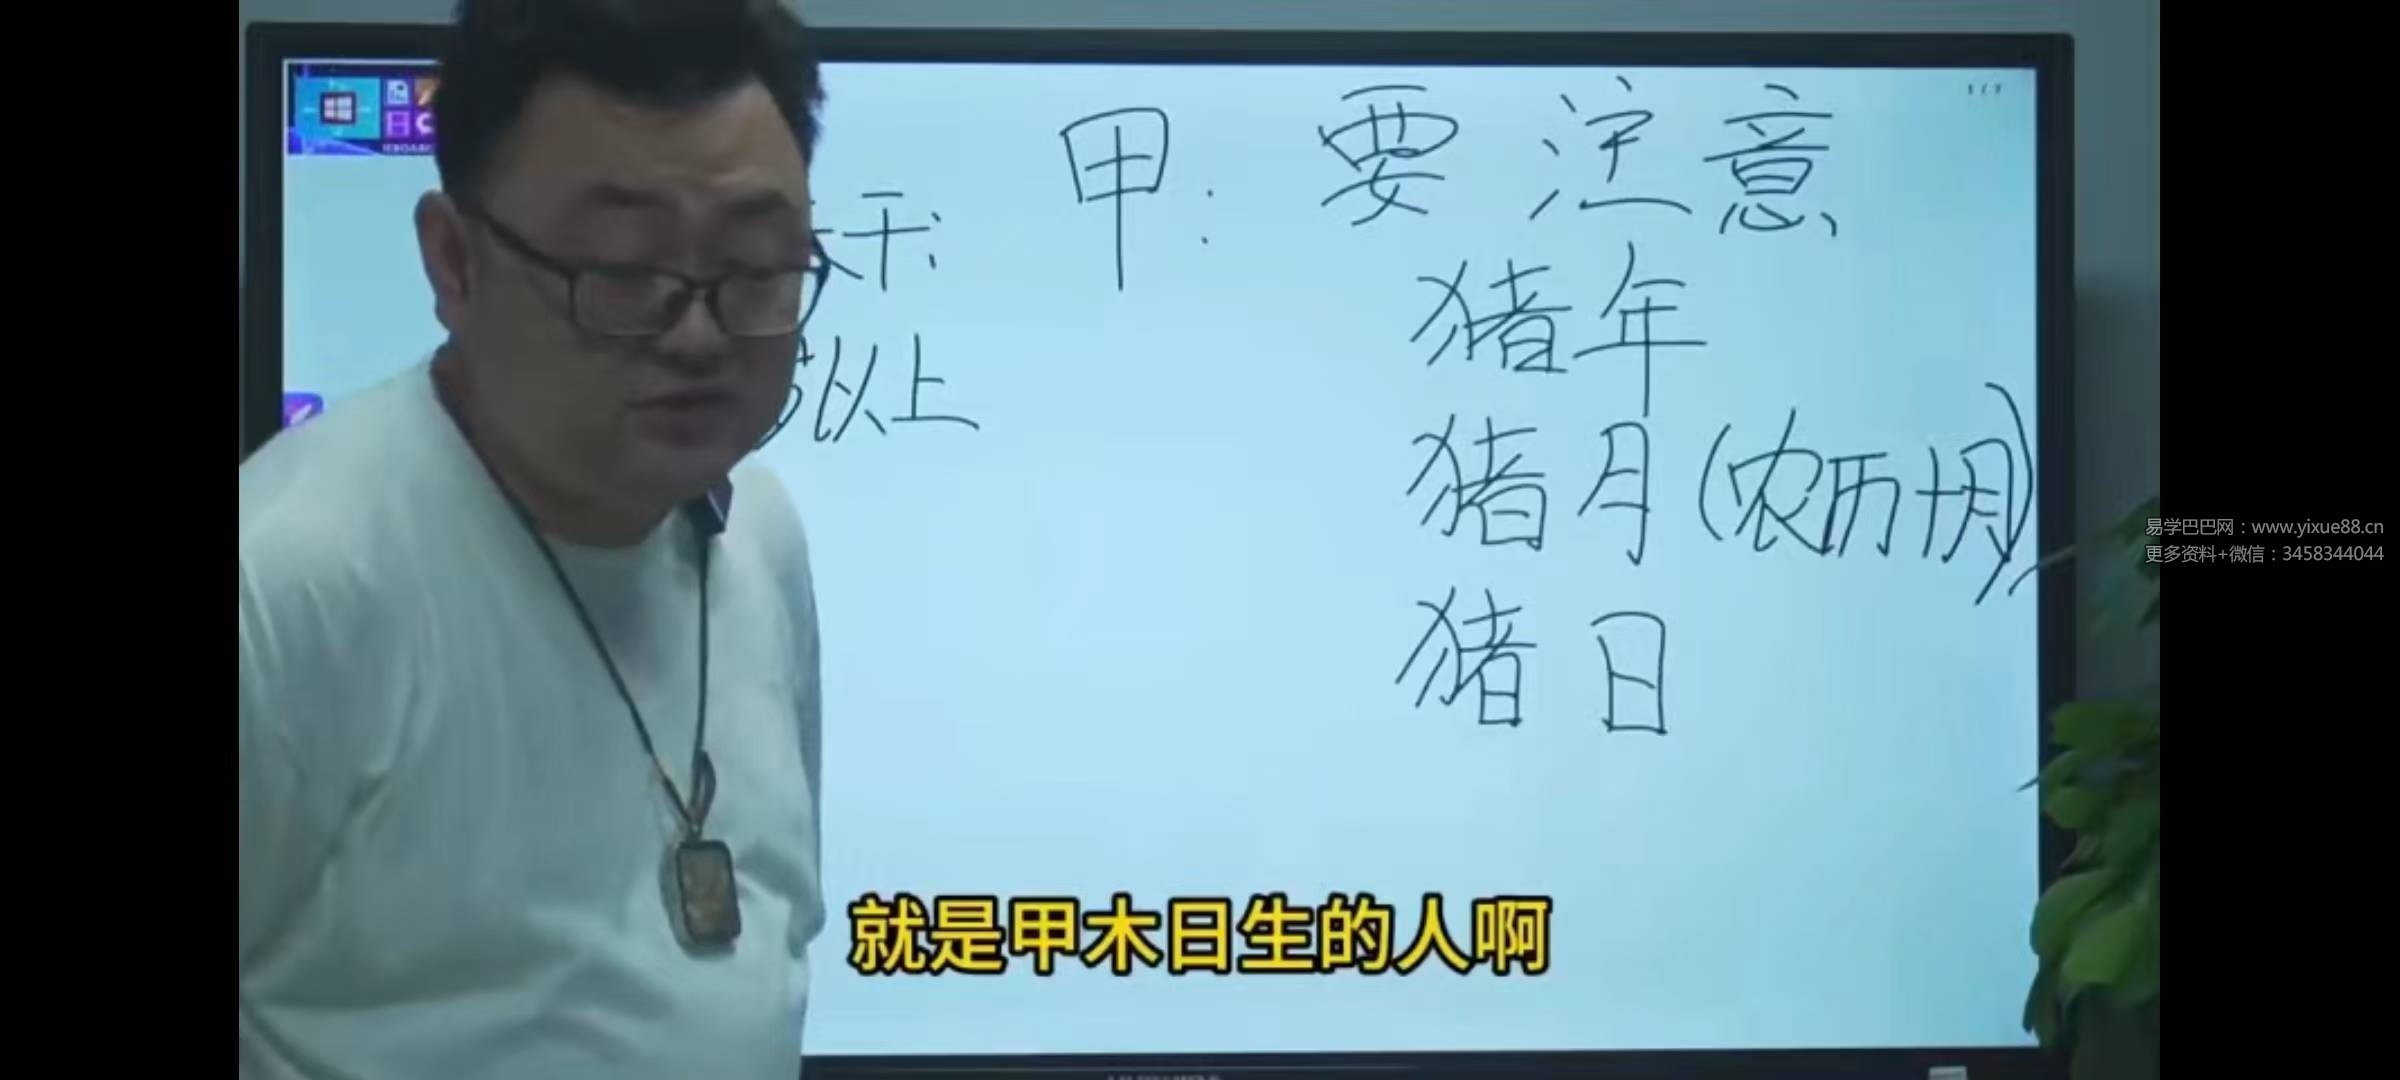 甲：要注意
天干：
岁以上
猪年
猪月（农历十月）
猪日
易学巴巴网：www.yixue88.cn
更多资料+微信：3458344044
就是甲木日生的人啊